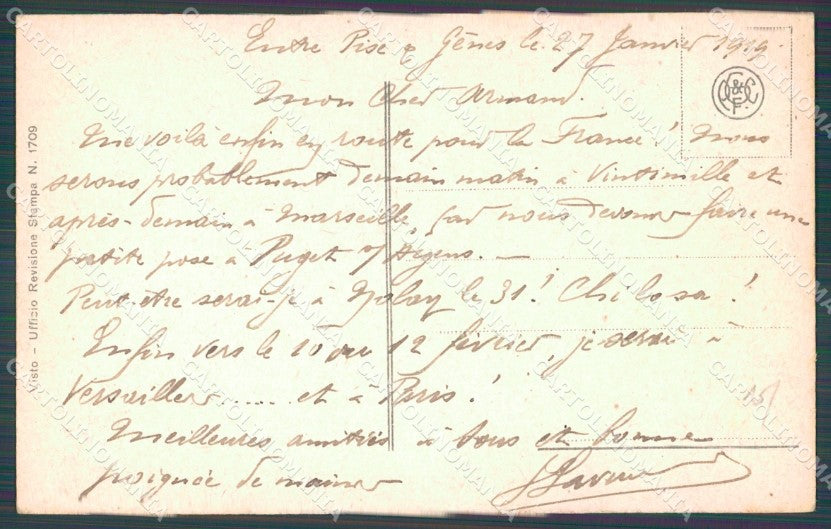 Entre Pise & Gênes le 27 Janvier 1919.
Mon Cher Armand.
Me voilà enfin en route pour la France! Nous
serons probablement demain matin à Vintimille et
après-demain à Marseille, car nous devons faire une
petite pose à Puget s/ Argens. —
Peut-être serai-je à Nolay le 31! Chi lo sa!
Enfin vers le 10 ou 12 février, je serai à
Versailles ..... et à Paris!
Meilleures amitiés à tous et bonne
poignée de mains
Visto - Ufficio Revisione Stampa N. 1709
15/
CARTOLINOMANIA